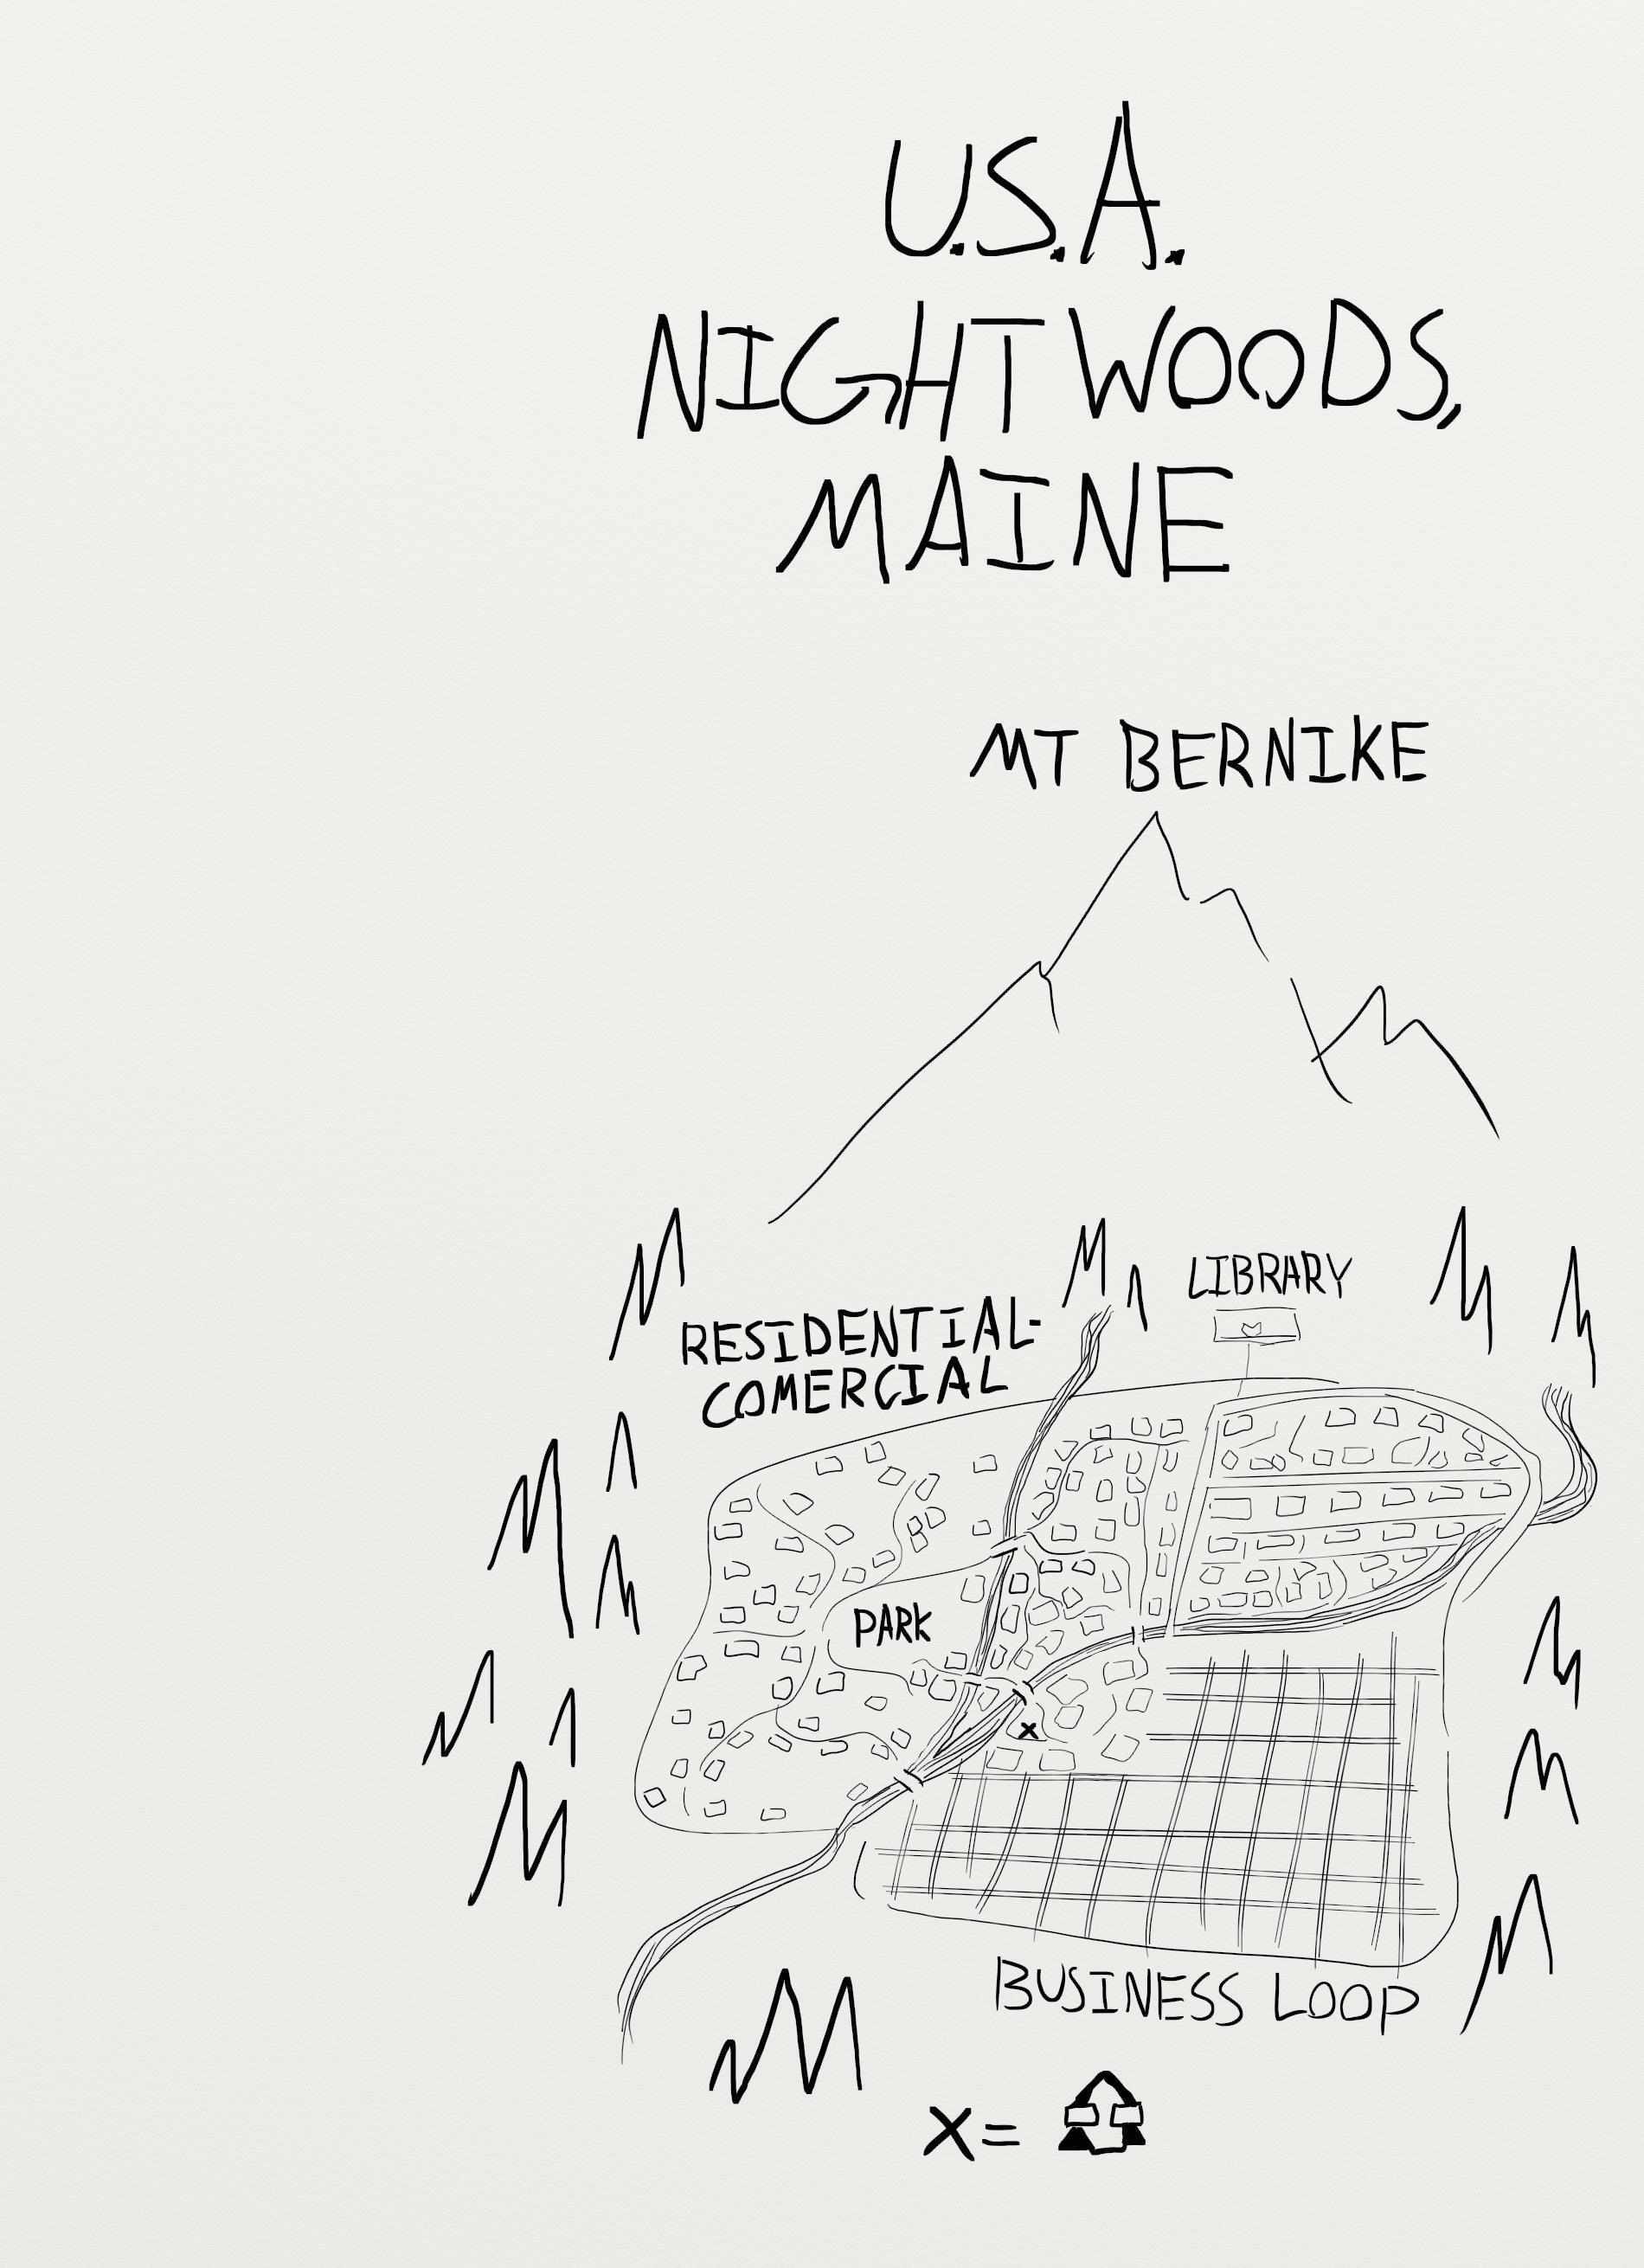 U.S.A.
NIGHTWOODS,
MAINE
MT BERNIKE
LIBRARY
RESIDENTIAL-
COMERCIAL
PARK
X
BUSINESS LOOP
X=